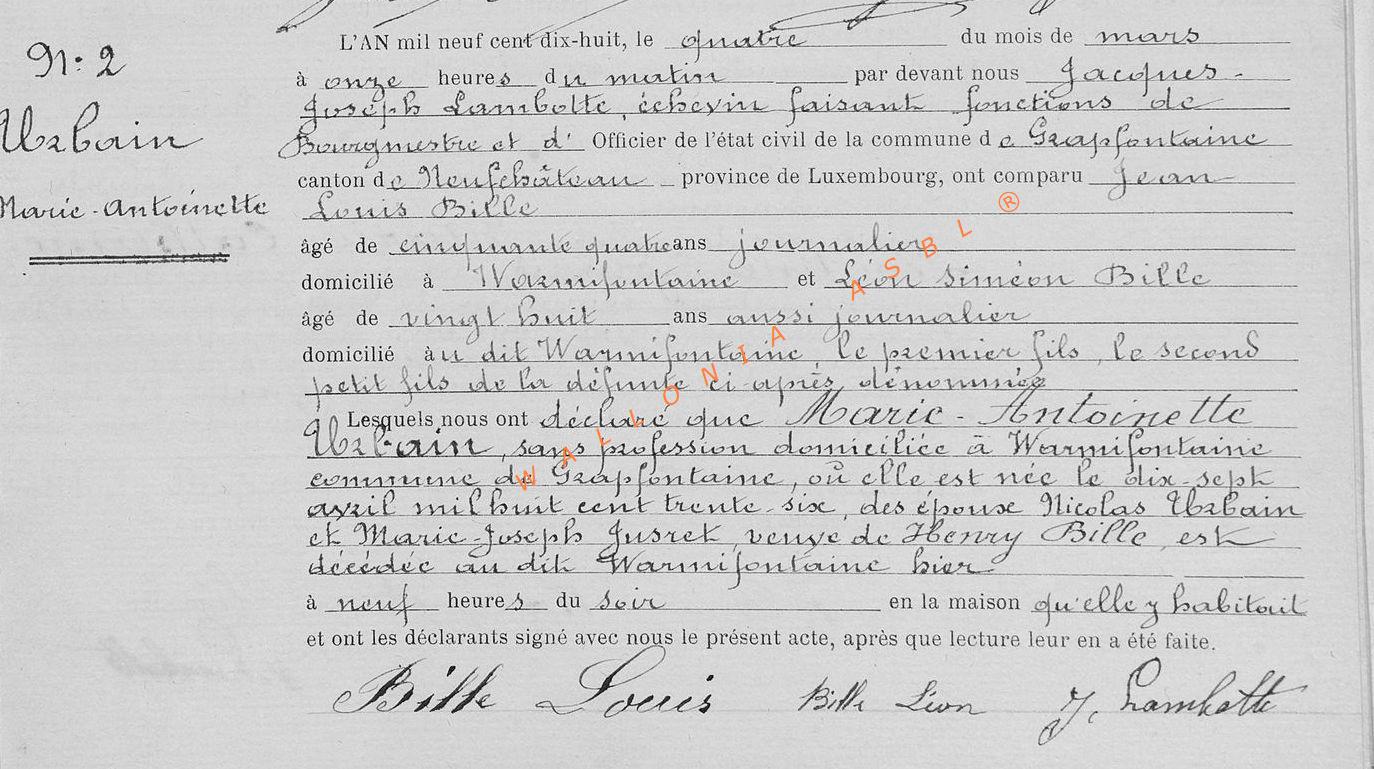 N: 2
Urbain
Marie-Antoinette
L'AN mil neuf cent dix-huit, le quatre du mois de mars
à onze heures du matin par devant nous Jacques-
Joseph Lambotte, échevin faisant fonctions de
Bourgmestre et d' Officier de l'état civil de la commune de Grapfontaine
canton de Neufchâteau province de Luxembourg, ont comparu Jean
Louis Bille
âgé de cinquante quatre ans journalier
domicilié à Warmifontaine et Léon Siméon Bille
âgé de vingt huit ans aussi journalier
domicilié au dit Warmifontaine, le premier fils, le second
petit fils de la défunte ci-après dénommée
Lesquels nous ont déclaré que Marie-Antoinette
Urbain, sans profession domiciliée à Warmifontaine
commune de Grapfontaine, où elle est née le dix-sept
avril mil huit cent trente-six, des époux Nicolas Urbain
et Marie-Joseph Jusret, veuve de Henry Bille, est
décédée au dit Warmifontaine hier
à neuf heures du soir en la maison qu'elle y habitait
et ont les déclarants signé avec nous le présent acte, après que lecture leur en a été faite.
Bille Louis Bille Léon J. Lambotte
WALLONIA ASBL ®